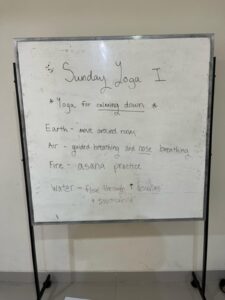 Sunday Yoga I
* Yoga for calming down *
Earth - move around room
Air - guided breathing and nose breathing
Fire - asana practice
Water - flow through